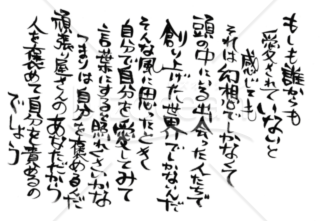 もしも誰からも
愛されていないと
感じても
それは幻想でしかなくて
頭の中にいる出会った人たちで
創り上げた世界でしかないんだ
そんな風に思ったときは
自分で自分を愛してみて
言葉にすると照れくさいかな
つまりは自分を褒めるんだ
頑張り屋さんのあなただから
人を褒めて自分を責めるの
でしょう